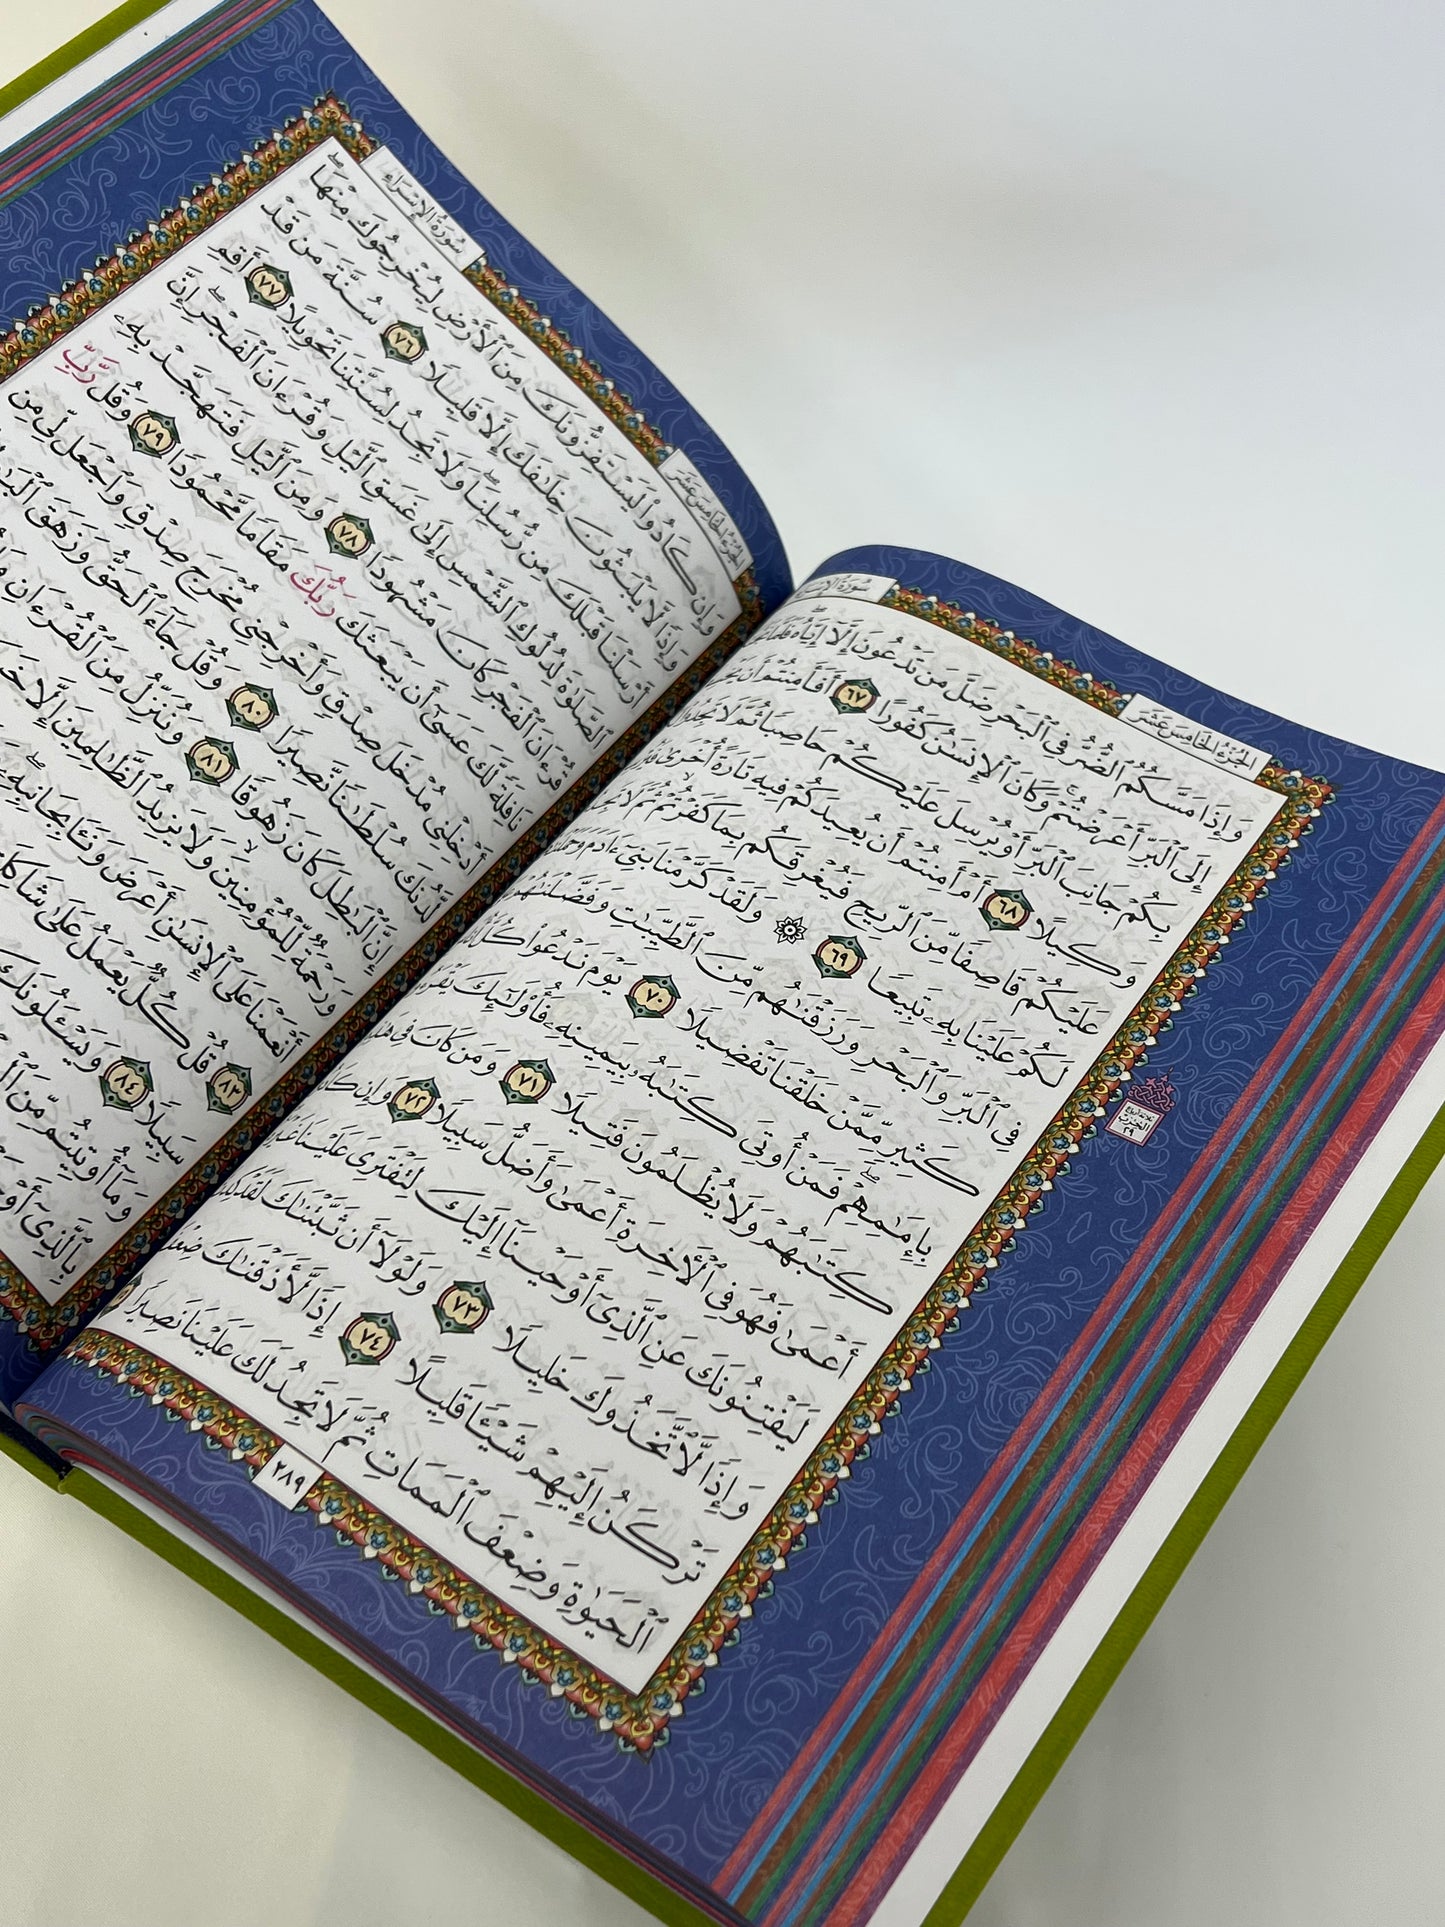 الجُزْءُ الخَامِسَ عَشَرَ
سُورَةُ الإِسْرَاءِ
وَإِذَا مَسَّكُمُ ٱلضُّرُّ فِي ٱلْبَحْرِ ضَلَّ مَن تَدْعُونَ إِلَّآ إِيَّاهُ
إِلَى ٱلْبَرِّ أَعْرَضْتُمْ ۚ وَكَانَ ٱلْإِنسَٰنُ كَفُورًا ٦٧ أَفَأَمِنتُمْ أَن
بِكُمْ جَانِبَ ٱلْبَرِّ أَوْ يُرْسِلَ عَلَيْكُمْ حَاصِبًا ثُمَّ لَا تَجِدُوا۟
وَكِيلًا ٦٨ أَمْ أَمِنتُمْ أَن يُعِيدَكُمْ فِيهِ تَارَةً أُخْرَىٰ
عَلَيْكُمْ قَاصِفًا مِّنَ ٱلرِّيحِ فَيُغْرِقَكُم بِمَا كَفَرْتُمْ ۙ ثُمَّ لَا
لَكُمْ عَلَيْنَا بِهِۦ تَبِيعًا ٦٩ ۞ وَلَقَدْ كَرَّمْنَا بَنِيٓ ءَادَمَ
فِي ٱلْبَرِّ وَٱلْبَحْرِ وَرَزَقْنَٰهُم مِّنَ ٱلطَّيِّبَٰتِ وَفَضَّلْنَٰهُمْ
كَثِيرٍ مِّمَّنْ خَلَقْنَا تَفْضِيلًا ٧٠ يَوْمَ نَدْعُوا۟ كُلَّ
بِإِمَٰمِهِمْ ۖ فَمَنْ أُوتِيَ كِتَٰبَهُۥ بِيَمِينِهِۦ فَأُو۟لَٰٓئِكَ
كِتَٰبَهُمْ وَلَا يُظْلَمُونَ فَتِيلًا ٧١ وَمَن كَانَ فِي
أَعْمَىٰ فَهُوَ فِي ٱلْأَخِرَةِ أَعْمَىٰ وَأَضَلُّ سَبِيلًا ٧٢ وَإِن
لَيَفْتِنُونَكَ عَنِ ٱلَّذِيٓ أَوْحَيْنَآ إِلَيْكَ لِتَفْتَرِيَ عَلَيْنَا
وَإِذًا لَّٱتَّخَذُوكَ خَلِيلًا ٧٣ وَلَوْلَآ أَن ثَبَّتْنَٰكَ لَقَدْ
تَرْكَنُ إِلَيْهِمْ شَيْـًٔا قَلِيلًا ٧٤ إِذًا لَّأَذَقْنَٰكَ
ٱلْحَيَوٰةِ وَضِعْفَ ٱلْمَمَاتِ ثُمَّ لَا تَجِدُ لَكَ عَلَيْنَا نَصِيرًا
ثلاثة أرباع
الحزب
٢٩
٢٨٩
الجُزْءُ الخَامِسَ عَشَرَ
سُورَةُ الإِسْرَاءِ
وَإِن كَادُوا۟ لَيَسْتَفِزُّونَكَ مِنَ ٱلْأَرْضِ لِيُخْرِجُوكَ مِنْهَا ۖ
وَإِذًا لَّا يَلْبَثُونَ خِلَٰفَكَ إِلَّا قَلِيلًا ٧٦ سُنَّةَ مَن قَدْ
أَرْسَلْنَا قَبْلَكَ مِن رُّسُلِنَا ۖ وَلَا تَجِدُ لِسُنَّتِنَا تَحْوِيلًا ٧٧ أَقِمِ
ٱلصَّلَوٰةَ لِدُلُوكِ ٱلشَّمْسِ إِلَىٰ غَسَقِ ٱلَّيْلِ وَقُرْءَانَ ٱلْفَجْرِ ۖ إِنَّ
قُرْءَانَ ٱلْفَجْرِ كَانَ مَشْهُودًا ٧٨ وَمِنَ ٱلَّيْلِ فَتَهَجَّدْ بِهِۦ
نَافِلَةً لَّكَ عَسَىٰٓ أَن يَبْعَثَكَ رَبُّكَ مَقَامًا مَّحْمُودًا ٧٩ وَقُل رَّبِّ
أَدْخِلْنِي مُدْخَلَ صِدْقٍ وَأَخْرِجْنِي مُخْرَجَ صِدْقٍ وَٱجْعَل لِّي مِن
لَّدُنكَ سُلْطَٰنًا نَّصِيرًا ٨٠ وَقُلْ جَآءَ ٱلْحَقُّ وَزَهَقَ
إِنَّ ٱلْبَٰطِلَ كَانَ زَهُوقًا ٨١ وَنُنَزِّلُ مِنَ ٱلْقُرْءَانِ
وَرَحْمَةٌ لِّلْمُؤْمِنِينَ ۙ وَلَا يَزِيدُ ٱلظَّٰلِمِينَ إِلَّا
أَنْعَمْنَا عَلَى ٱلْإِنسَٰنِ أَعْرَضَ وَنَـَٔا بِجَانِبِهِۦ ۖ
٨٣ قُلْ كُلٌّ يَعْمَلُ عَلَىٰ
سَبِيلًا ٨٤ وَيَسْـَٔلُونَكَ
وَمَآ أُوتِيتُم مِّنَ
بِٱلَّذِيٓ